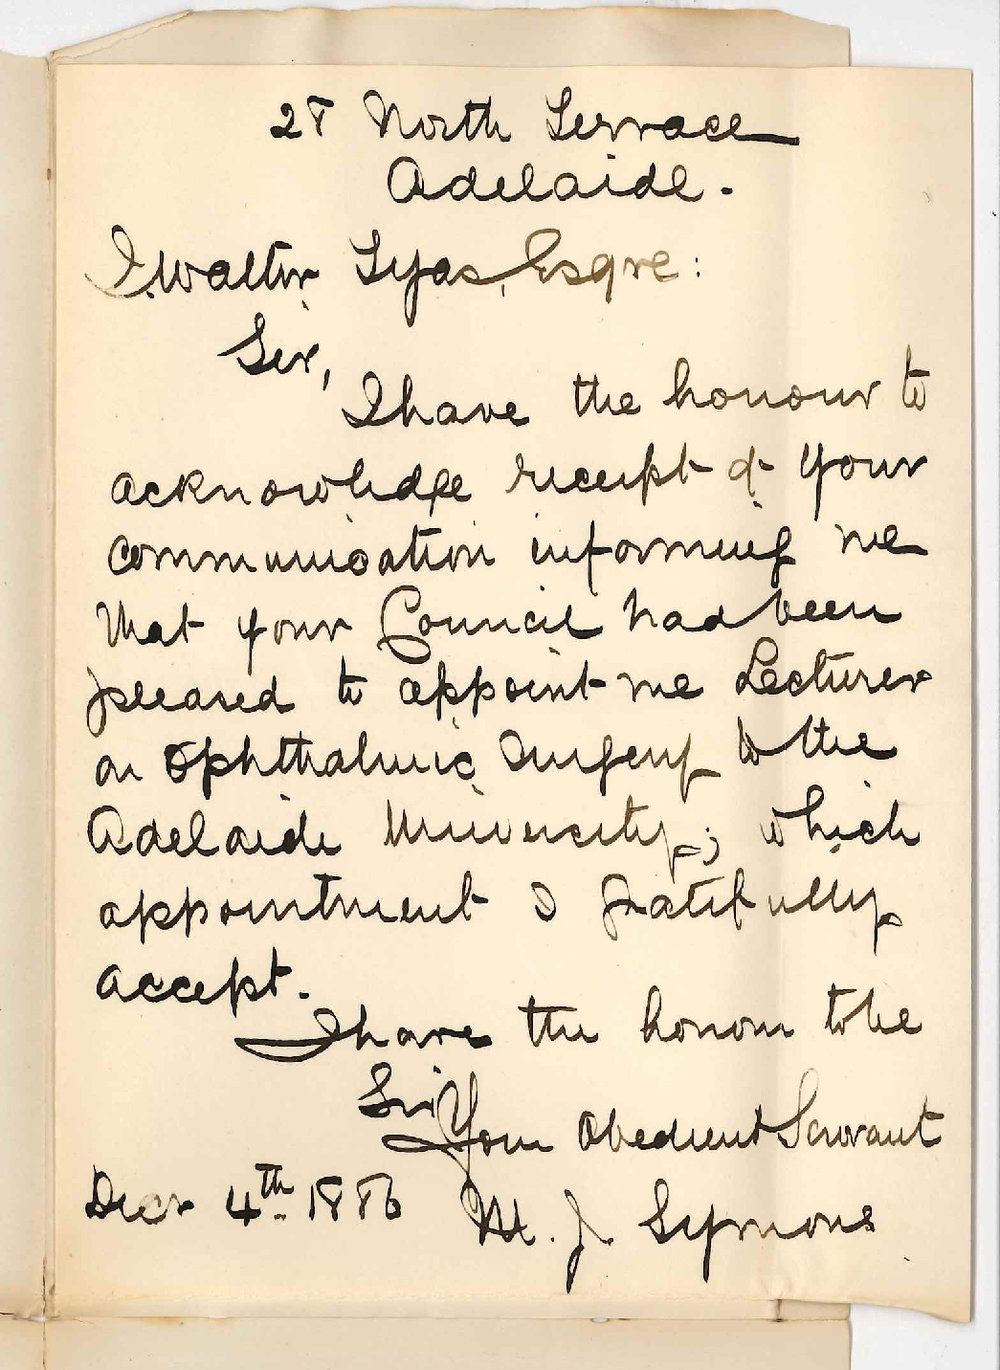 28 North Terrace
Adelaide.
J. Walter Tyas, Esqre:
Sir,
I have the honour to
acknowledge receipt of your
communication informing me
that your Council had been
pleased to appoint me Lecturer
on Ophthalmic Surgery to the
Adelaide University; which
appointment I gratefully
accept.
I have the honour to be
Sir
Your Obedient Servant
Decr 4th. 1886 M. J. Symons